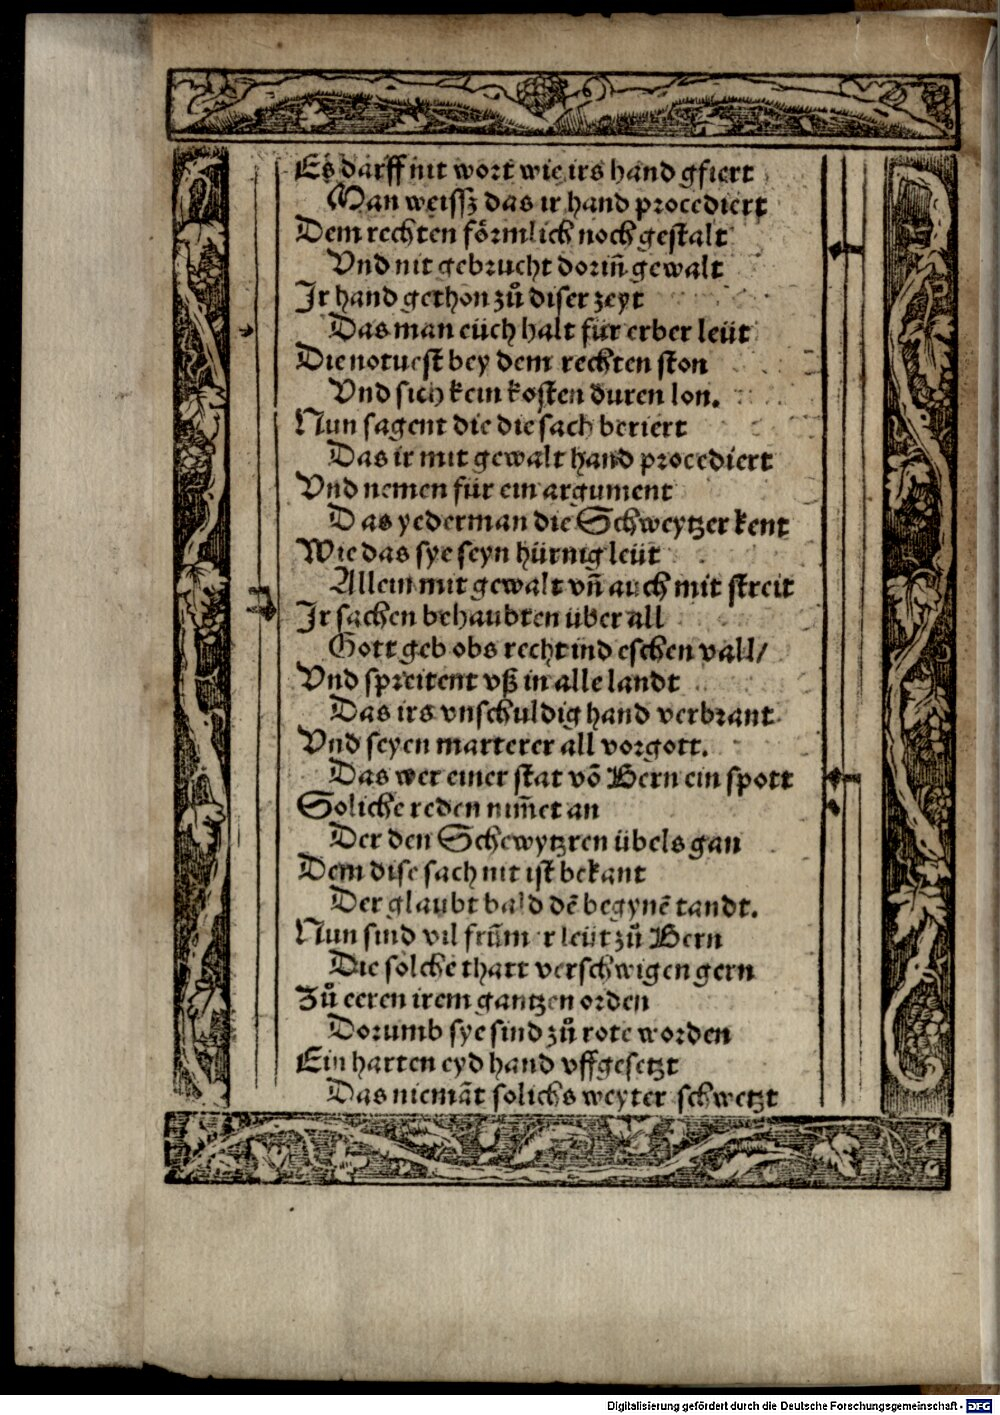 Es darff nit wort wie irs hand gfiert
Man weissz das ir hand procediert
Dem rechten förmlich noch gestalt
Vnd nit gebrucht dorin̄ gewalt
Ir hand gethon zů diser zeyt
Das man eüch halt für erber leüt
Die notuest bey dem rechten ston
Vnd sich kein kosten duren lon.
Nun sagent die die sach beriert
Das ir mit gewalt hand procediert
Vnd nemen für ein argument
Das yederman die Schweytzer kent
Wie das sye seyn hürnig leüt
Allein mit gewalt vn̄ auch mit streit
Ir sachen behaubten über all
Gott geb obs recht ind eschen vall/
Vnd spreitent vß in alle landt
Das irs vnschuldig hand verbrant
Vnd seyen marterer all vor gott.
Das wer einer stat vō Bern ein spott
Soliche reden nim̄et an
Der den Schewytzren übels gan
Dem dise sach nit ist bekant
Der glaubt bald dē begynē tandt.
Nun sind vil frūmer leüt zů Bern
Die solche thatt verschwigen gern
Zů eeren irem gantzen orden
Dorumb sye sind zů rote worden
Ein harten eyd hand vffgesetzt
Das niemāt solichs weyter schwetzt
Digitalisierung gefördert durch die Deutsche Forschungsgemeinschaft - DFG